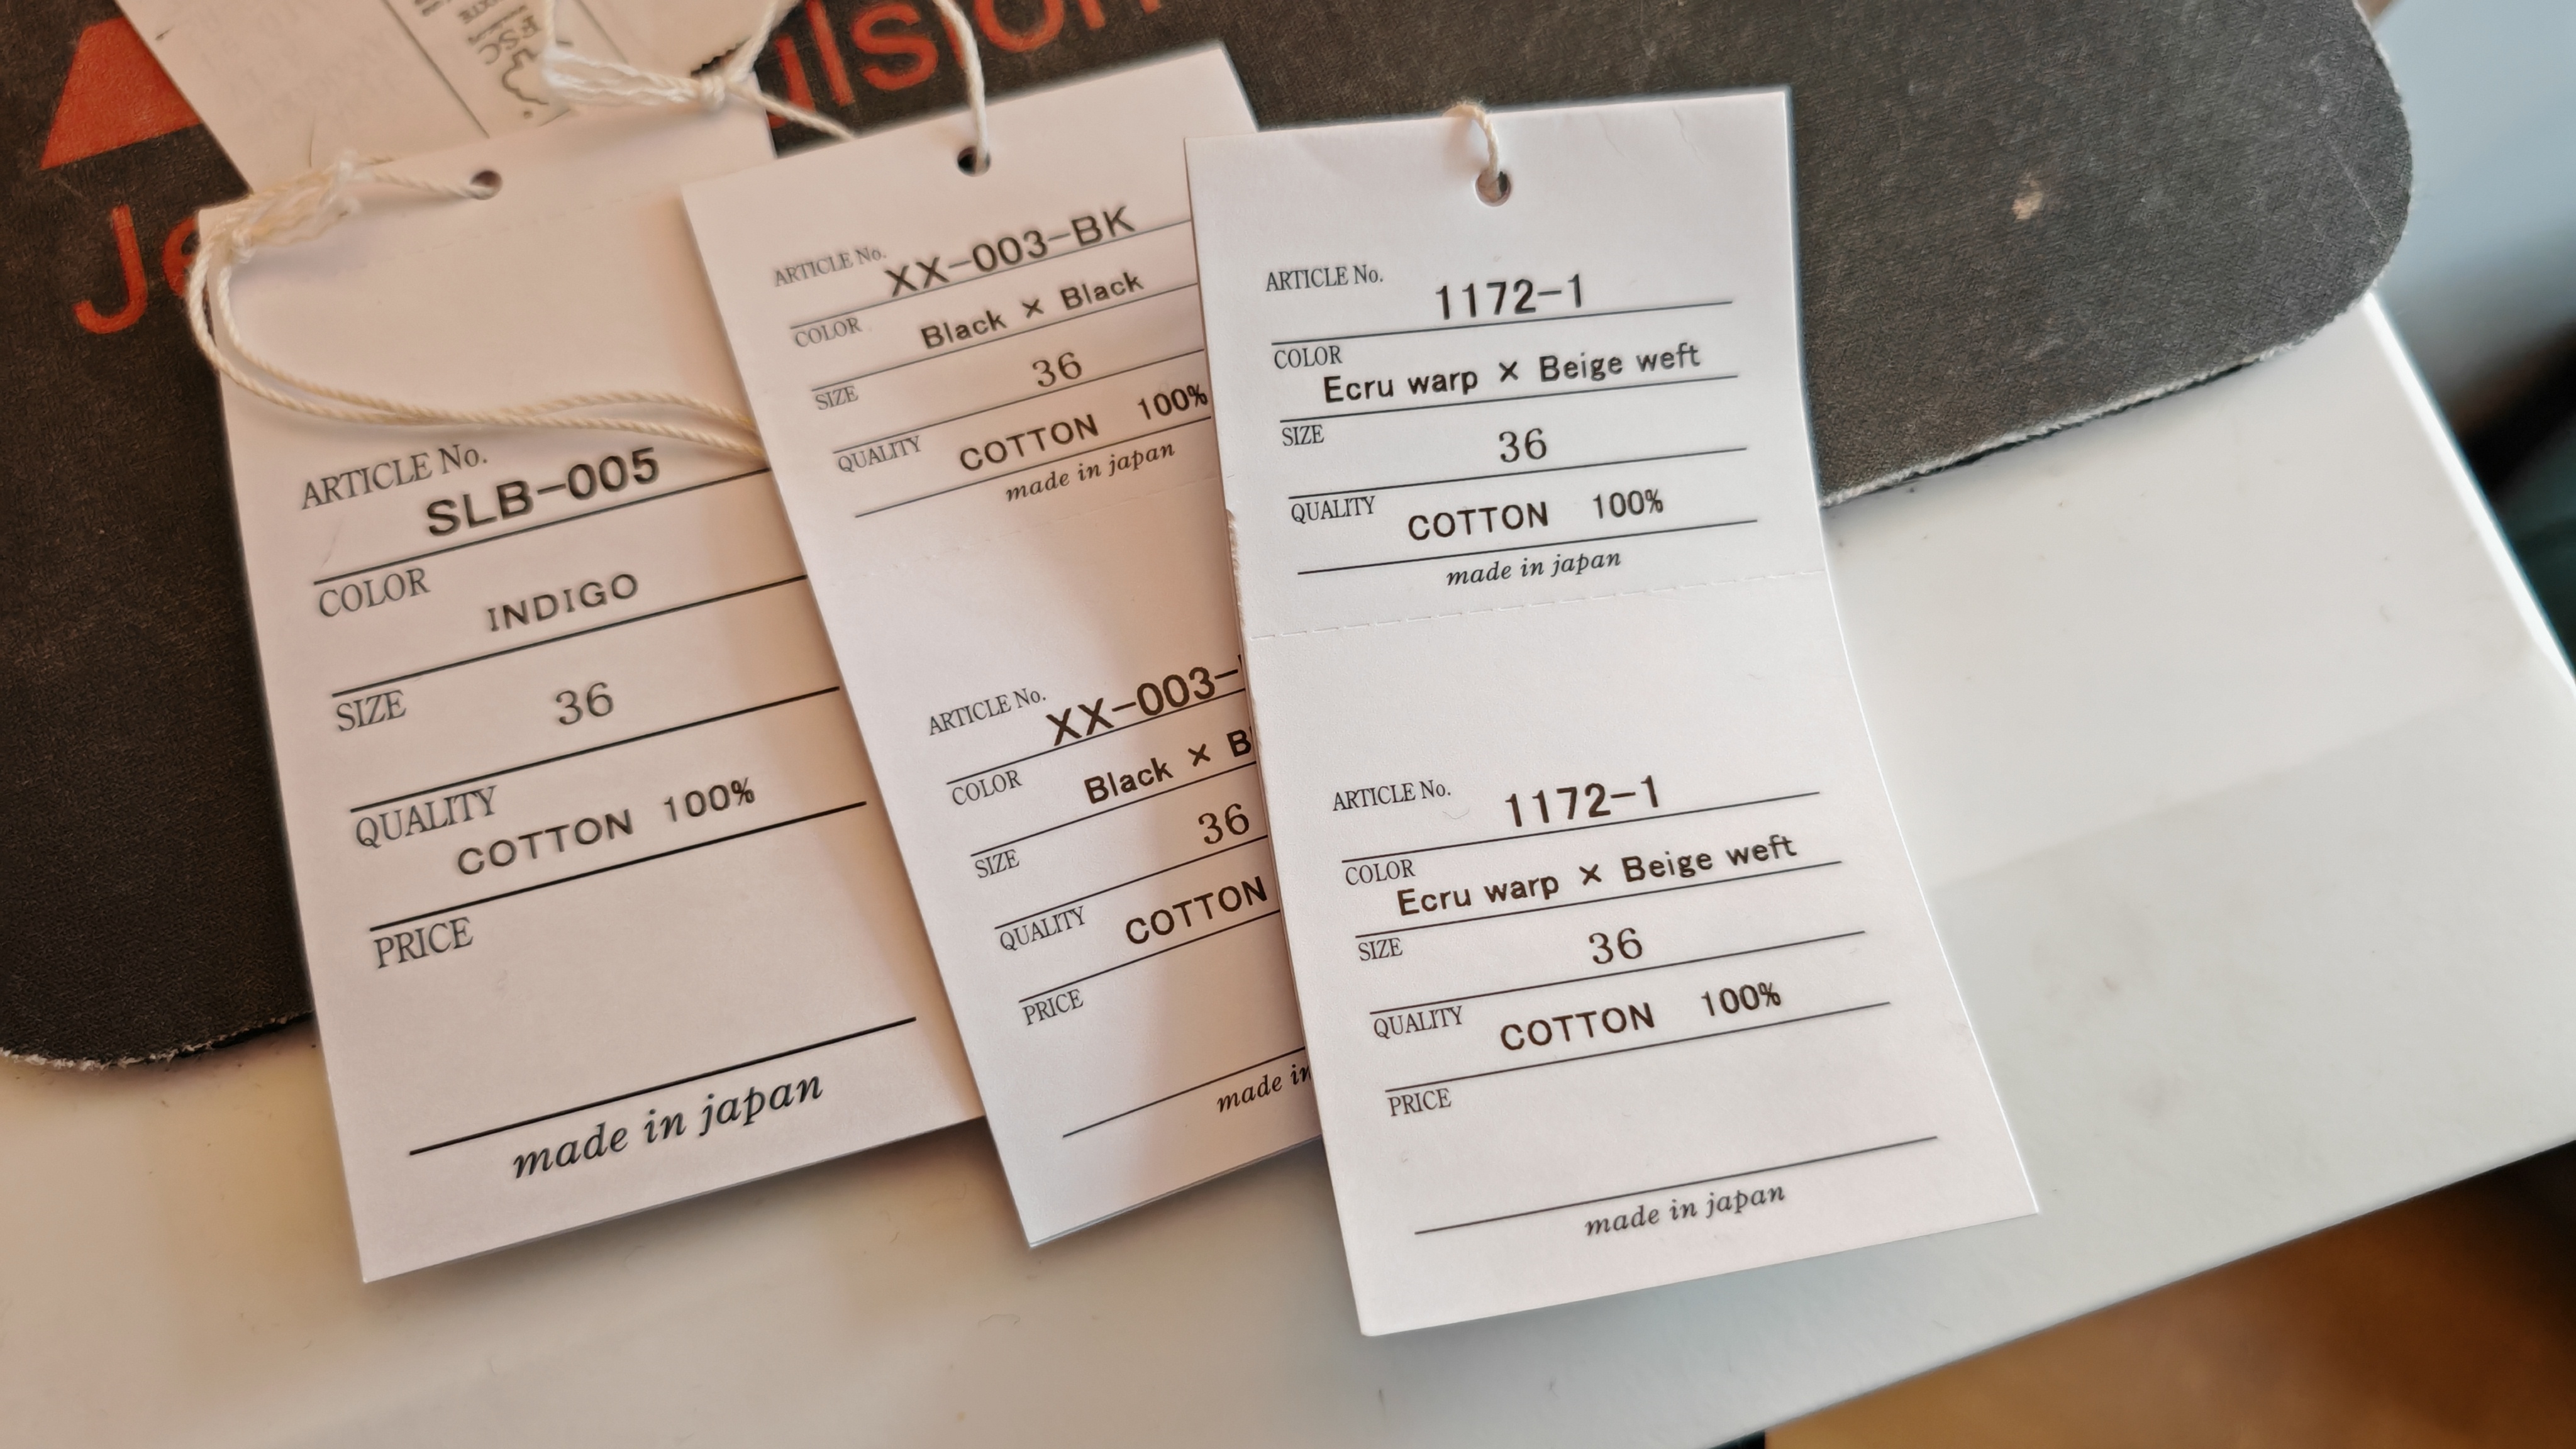 ARTICLE No. SLB-005
COLOR INDIGO
SIZE 36
QUALITY COTTON 100%
PRICE
made in japan
ARTICLE No. XX-003-BK
COLOR Black × Black
SIZE 36
QUALITY COTTON 100%
made in japan
ARTICLE No. XX-003-
COLOR Black × B
SIZE 36
QUALITY COTTON
PRICE
made in
ARTICLE No. 1172-1
COLOR Ecru warp × Beige weft
SIZE 36
QUALITY COTTON 100%
made in japan
ARTICLE No. 1172-1
COLOR Ecru warp × Beige weft
SIZE 36
QUALITY COTTON 100%
PRICE
made in japan